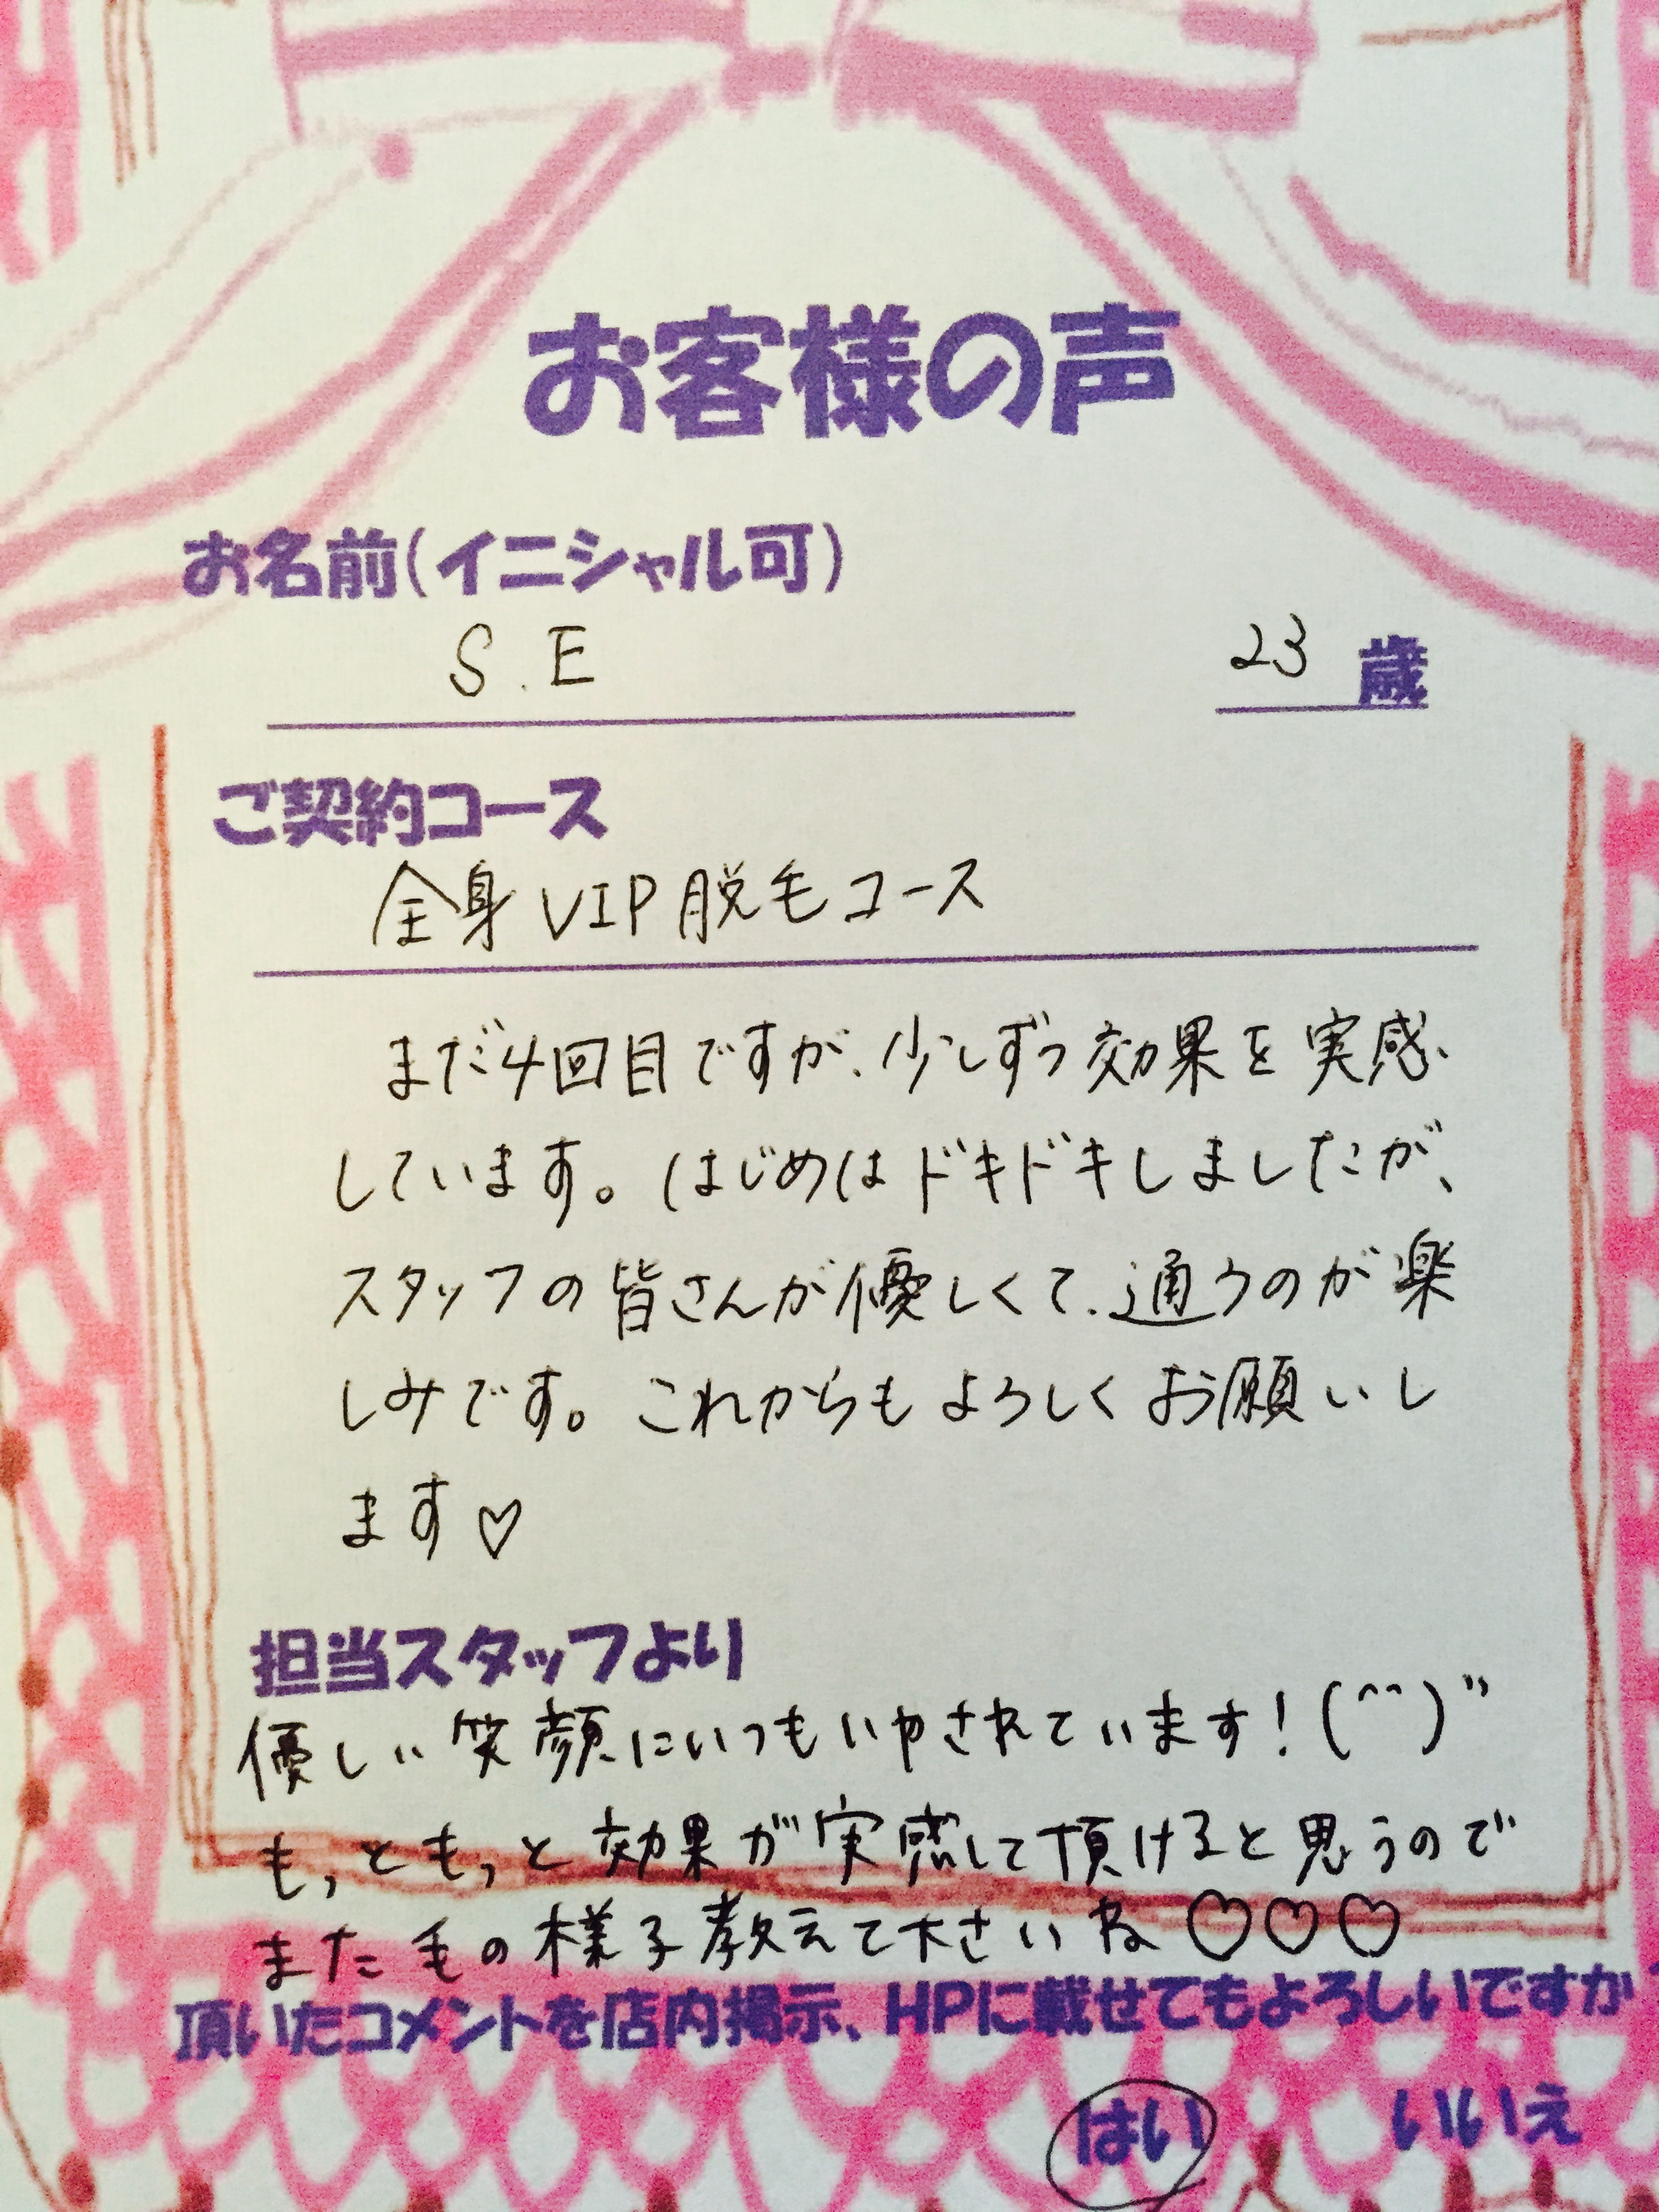 お客様の声
お名前(イニシャル可)
S.E 23歳
ご契約コース
全身VIP脱毛コース
まだ4回目ですが、少しずつ効果を実感
しています。はじめはドキドキしましたが、
スタッフの皆さんが優しくて、通うのが楽
しみです。これからもよろしくお願いし
ます♡
担当スタッフより
優しい笑顔にいつもいやされています!(^^)"
もっともっと効果が実感して頂けると思うので
また毛の様子教えて下さいね♡♡♡
頂いたコメントを店内掲示、HPに載せてもよろしいですか
はい いいえ